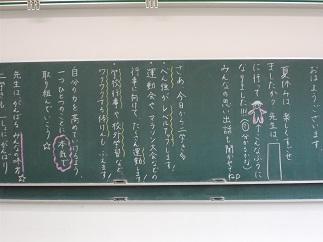 おはようございます。
夏休みは楽しくすごせ
ましたか？先生は
に行って こんなふうに
なりました!!!(分かるかな)
みんなの思い出話も聞かせてね
さあ、今日から二学き。
・べん強がレベルアップします！
・運動会やマラソン大会などの
行事に向けて、たくさん運動します！
・学校行事や校外学習など、
ワクワクする行事もふえます！
自分の力を高めていけるよう、
一つひとつのことに本気で
取り組んでいこう！☆
先生はがんばるみんなの味方。
二学きも一しょにがんばり